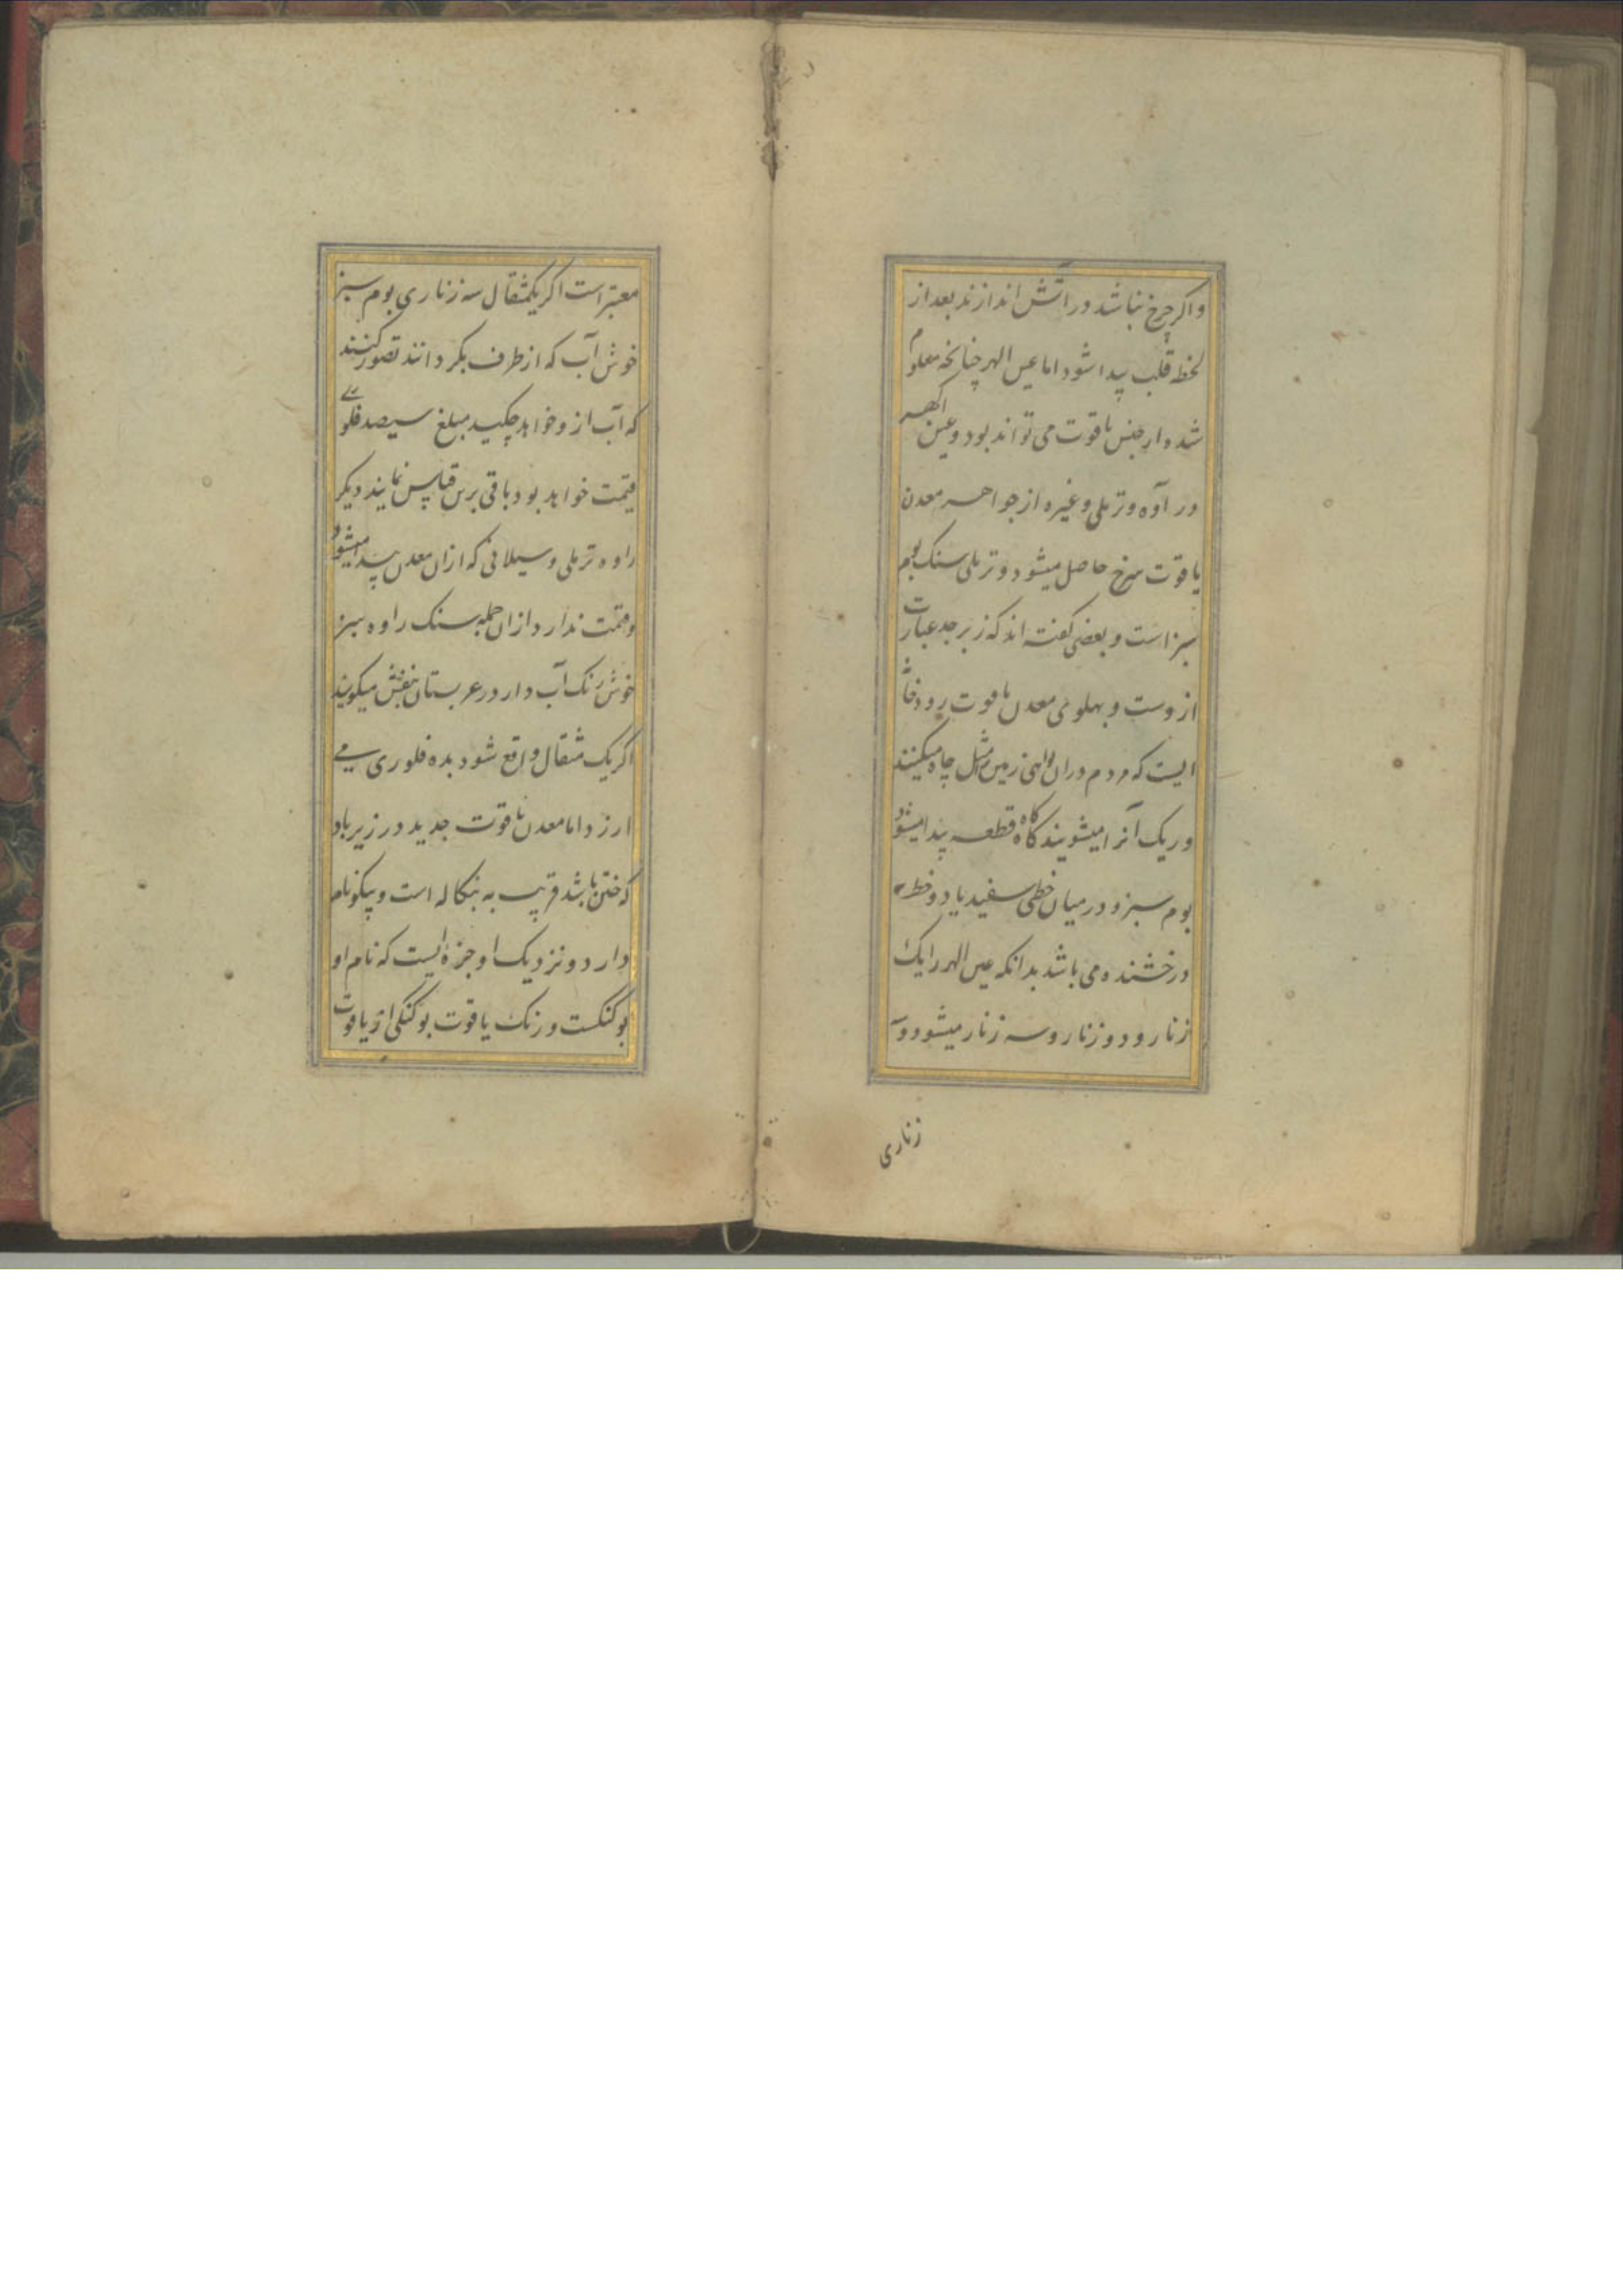 واکر چرخ نباشد در اتش اندازند بعد از
لحظه قلب پیدا شود اما عین الهر چنانچه معلوم
شد و از جنس یاقوت می تواند بود و عین الهر
در آوه و ترملی و غیره از جواهر معدن
یاقوت سرخ حاصل میشود و ترملی سنک بوم
سبز است و بعضی کفته اند که زبرجد عبارت
ازوست و پهلوی معدن یاقوت رودخا
ایست که مردم دران زمین مثل چاه میکنند
و ریک آنرا میشویند کاه کاه قطعه پیدا میشود
بوم سبز و در میان خطی سفید یا دو خط
درخشنده می باشد بدانکه عین الهر را یک
زنار و دو زنار و سه زنار میشود و
زناری
معتبر است اکر یکمثقال سه زناری بوم سبز
خوش آب که از طرف بکردانند تصور کنند
که آب ازو خواهد چکید مبلغ سیصد فلوری
قیمت خواهد بود باقی برین قیاس نمایند دیکر
راوه ترملی و سیلانی که ازان معدن پیدا میشود
و قیمت ندارد ازان جمله سنک راوه سبز
خوش رنک آب دار در عربستان بنفش میکویند
اکر یک مثقال واقع شود بده فلوری می
ارزد اما معدن یاقوت جدید در زیرباد
که ختن باشد قریب به بنکاله است و پیکو نام
دارد و نزدیک او جزه ایست که نام او
بوکنکست و رنک یاقوت بوکنکی از یاقوت